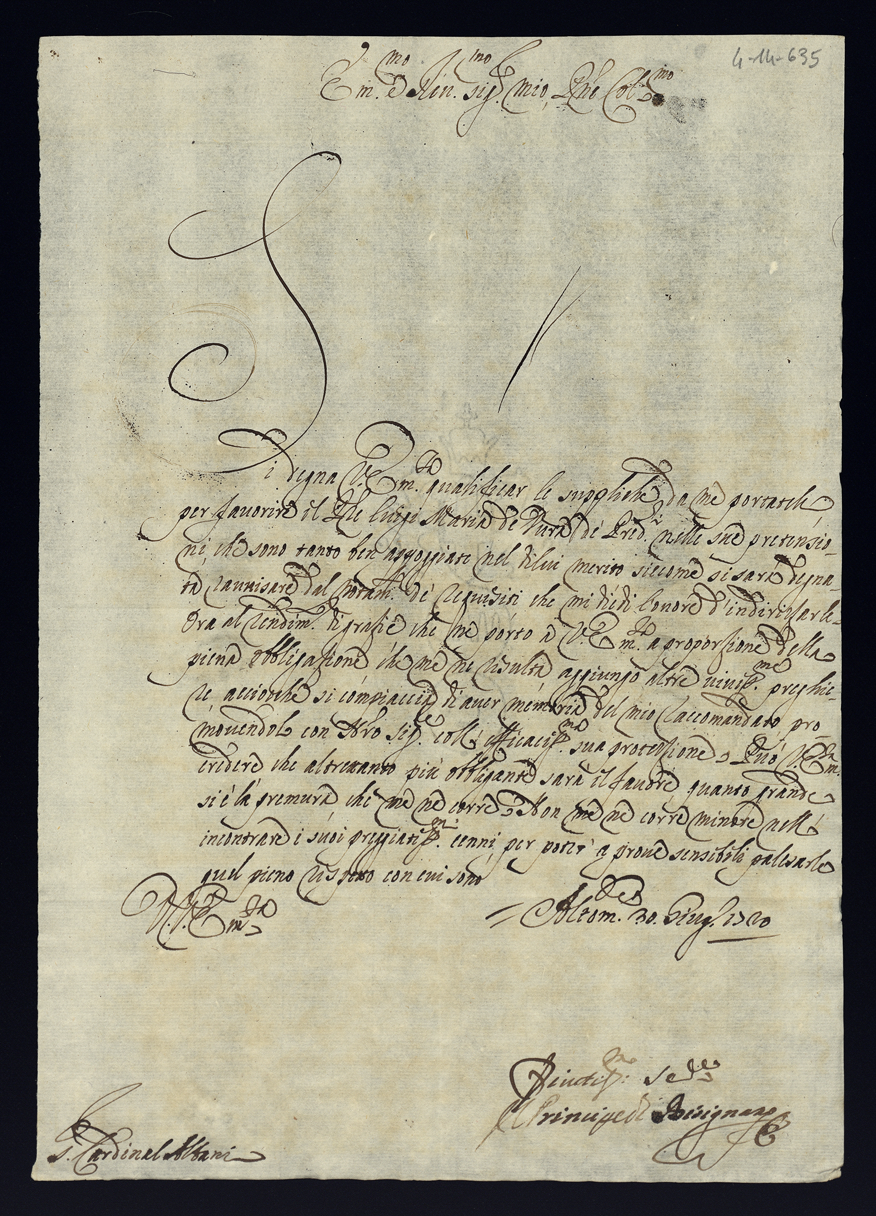 4-14-635
Em.mo e Rev.mo Sig.r mio, P̃ne Col.mo
Si degna V. Em.za qualificar le suppliche, da me portatele
per favorire il P̃re Luigi Maria de nelle sue pretensio-
ni che sono tanto ben appoggiate nel di lui merito siccome si sarà degna-
ta ravvisare dal de' requisiti che mi diedi l'onore d'indirizzarle.
Ora al rendim.to di grazie che ne porto a V. Em.za a proporzione della
piena obbligazione che me ne risulta aggiungo altre viviss.me preghie-
re acciocche si compiaccia di aver memoria del mio raccomandato pro-
movendolo con sig.re coll'efficaciss.ma sua protezione, Può V. Em.za
credere che altretanto più obbligante sarà il favore quanto grande
si è la premura che me ne corre, Non me ne corre minore nell'
incontrare i suoi preggiatiss.mi cenni per poter' a prove sensibili palesarle
quel pieno rispetto con cui sono
D. V. Em.za
Altom. 30. Giug.o 1720
Divotiss.mo
Il Principe di Bisignano
S. Cardinal Albani